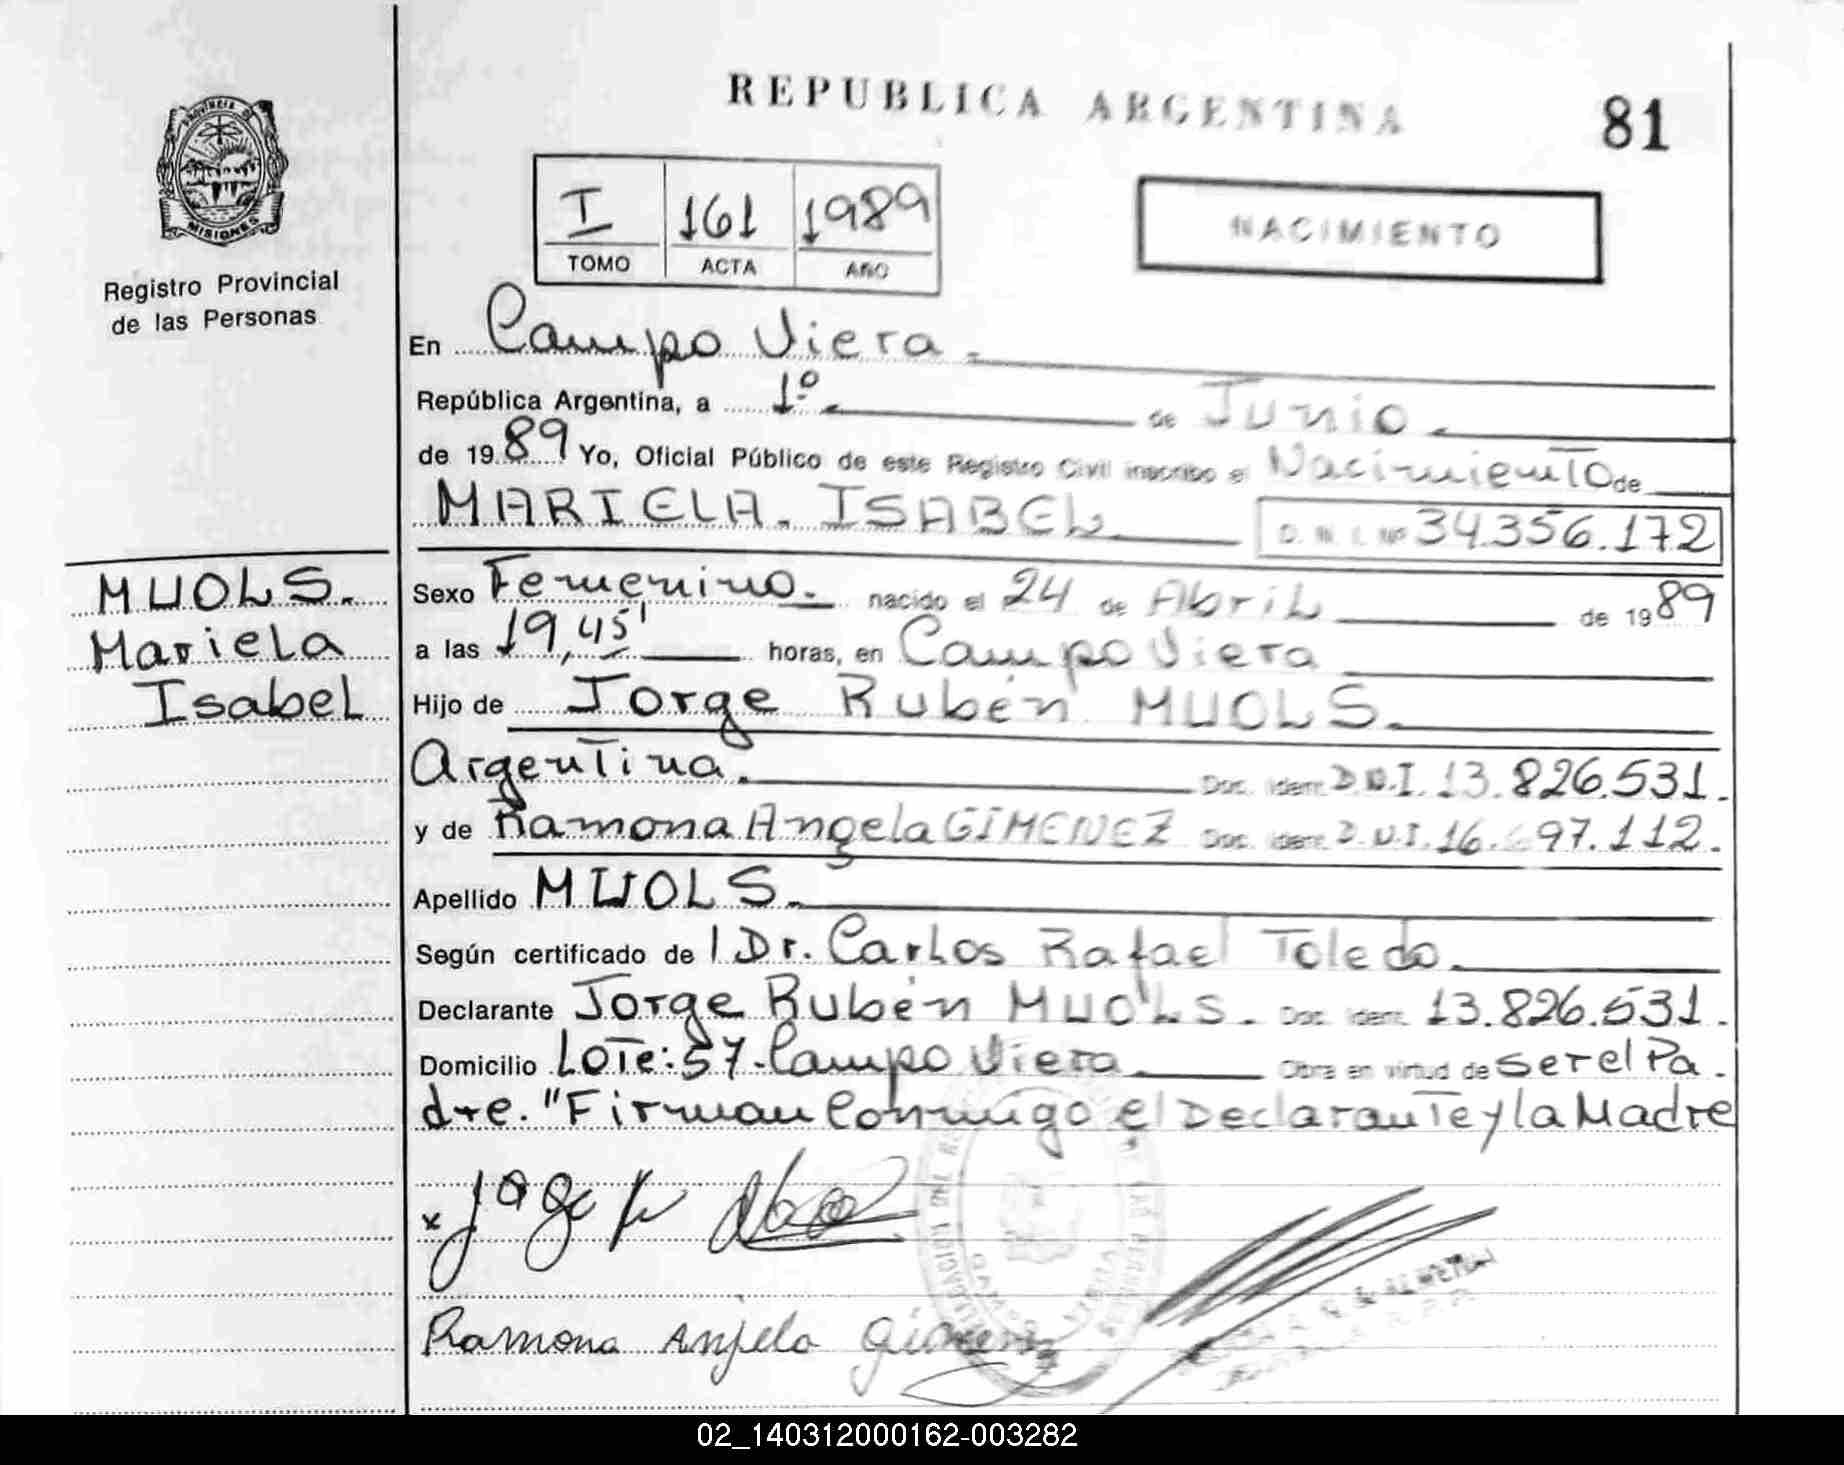 REPUBLICA ARGENTINA
81
PROVINCIA DE
MISIONES
Registro Provincial
de las Personas
I 161 1989
TOMO ACTA AÑO
NACIMIENTO
En Campo Viera.
República Argentina, a 1º de Junio.
de 1989 Yo, Oficial Público de este Registro Civil inscribo el Nacimiento de
MARIELA. ISABEL D.N.I. Nº 34.356.172
MUOLS.
Mariela
Isabel
Sexo Femenino. nacido el 24 de Abril de 1989
a las 19,45' horas, en Campo Viera
Hijo de Jorge Rubén MUOLS.
Argentina. Doc. Ident. D.N.I. 13.826.531.
y de Ramona Angela GIMENEZ Doc. Ident. D.N.I. 16. 97.112.
Apellido MUOLS.
Según certificado de l Dr. Carlos Rafael Toledo.
Declarante Jorge Rubén MUOLS. Doc. Ident. 13.826.531.
Domicilio Lote: 57. Campo Viera Obra en virtud de ser el Pa
dre. "Firman Conmigo el Declarante y la Madre
x Jorge R
Ramona Anjela Gimenez
02_140312000162-003282